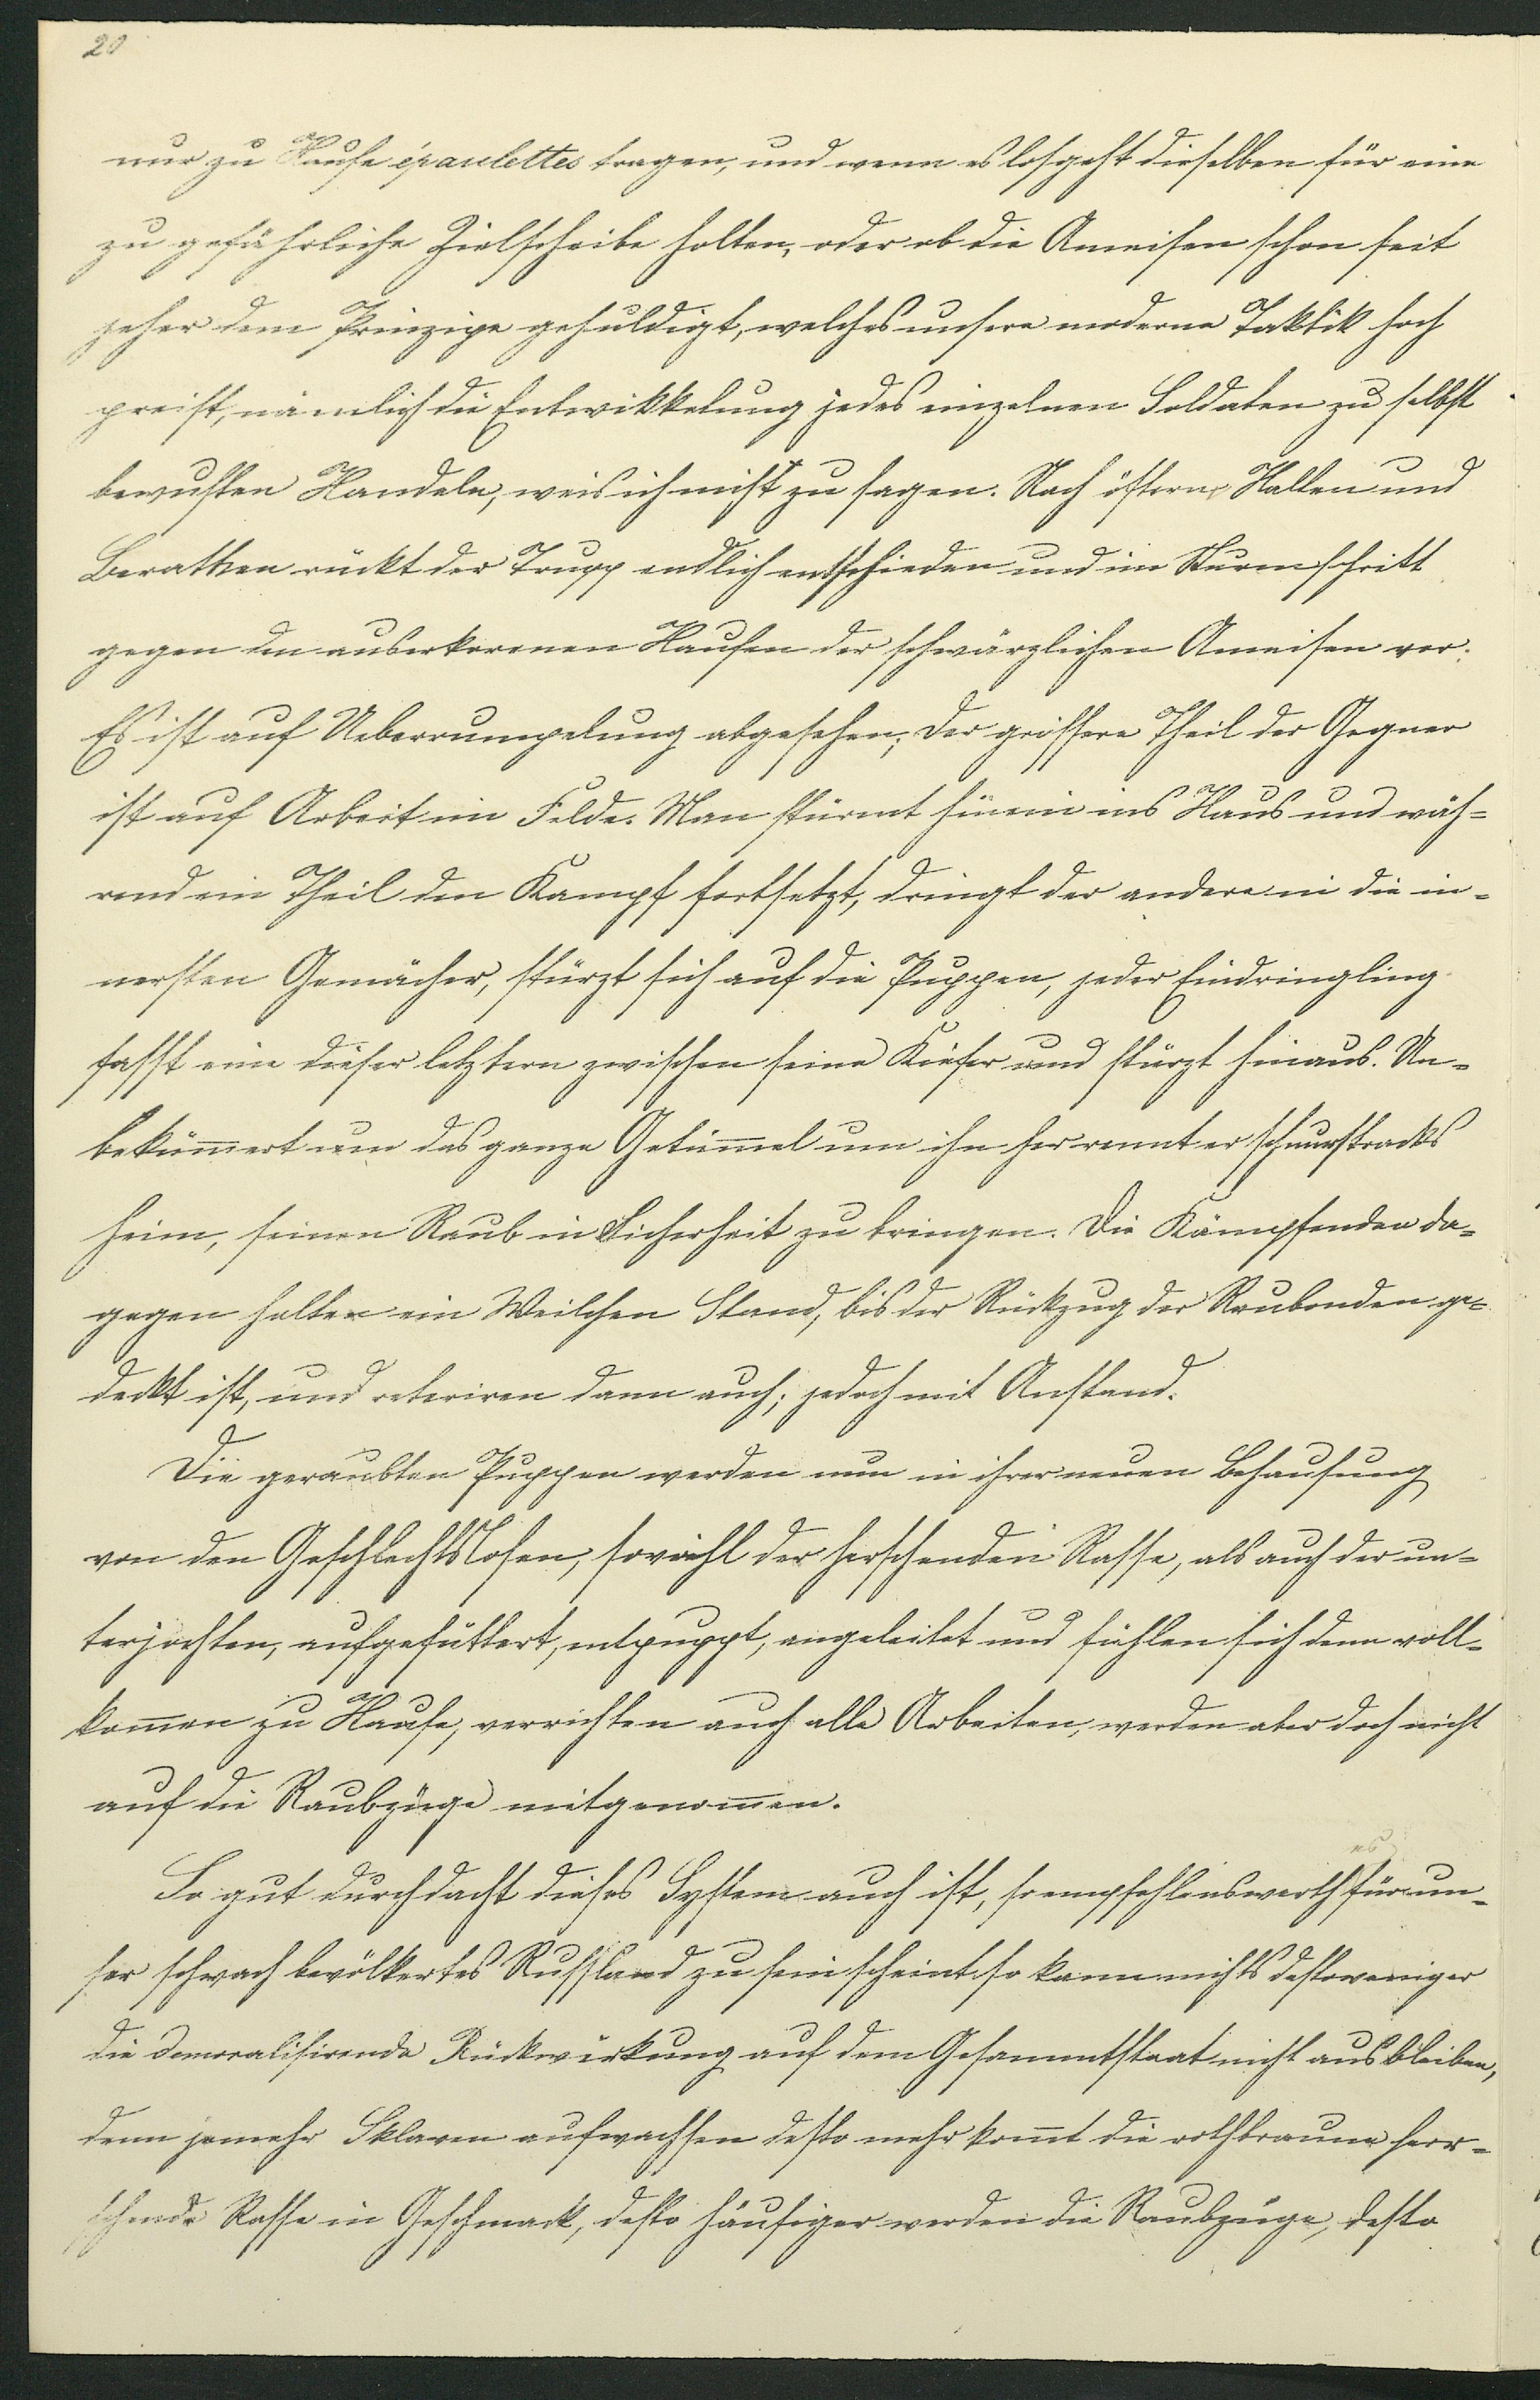 20
nur zu Hause épaulettes tragen, und wenn es losgeht dieselben für eine
zu gefährliche Zielscheibe halten, oder ob die Ameisen schon seit
jeher dem Prinzipe gehuldigt, welches unsere moderne Taktik hoch
preist, nämlich die Entwikkelung jedes einzelnen Soldaten zu selbst
bewußten Handeln, weis ich nicht zu sagen. Nach öfterm Halten und
Berathen rückt der Trupp endlich entschieden und im Sturmschritt
gegen den auserkorenen Haufen der schwärzlichen Ameisen vor.
Es ist auf Ueberrumpelung abgesehen; der grössere Theil der Gegner
ist auf Arbeit im Felde. Man stürmt hinein ins Haus und wäh-
rend ein Theil den Kampf fortsetzt, dringt der andere in die in-
nersten Gemächer, stürzt sich auf die Puppen, jeder Eindringling
fasst eine dieser letztern zwischen seine Kiefer und stürzt hinaus. Un-
bekümert um das ganze Getümel um ihn her rennt er schnurstracks
heim, seinen Raub in Sicherheit zu bringen. Die Kämpfenden da-
gegen halten ein Weilchen Stand, bis der Rückzug der Raubenden ge-
deckt ist, und reteriren dann auch; jedoch mit Anstand.
Die geraubten Puppen werden nun in ihrer neuen Behausung
von den Geschlechtslosen, sowohl der herschenden Rasse, als auch der un-
terjochten, aufgefüttert, entpuppt, angeleitet und fühlen sich denn voll-
komen zu Hause, verrichten auch alle Arbeiten, werden aber doch nicht
auf die Raubzüge mitgenomen.
So gut durchdacht dieses System auch ist, so empfehlenswerth es für un-
ser schwach bevölkertes Russland zu sein scheint so kann nichts destoweniger
die demoralisirende Rückwirkung auf dem Gesammtstaat nicht ausbleiben,
denn jemehr Sklaven aufwachsen desto mehr komt die rothbraune herr-
schende Rasse in Geschmack, desto häufiger werden die Raubzüge, desto